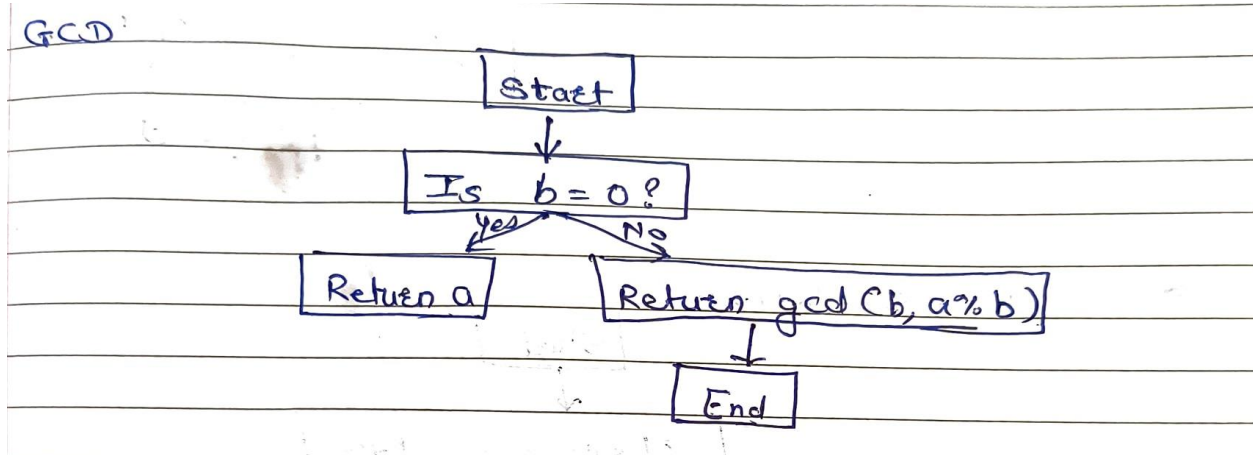 GCD:
Start
Is b = 0 ?
Yes No
Return a
Return gcd (b, a% b)
End